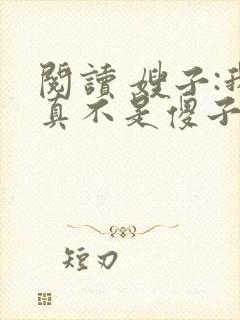 閱讀 嫂子:我
真不是傻子
短刃